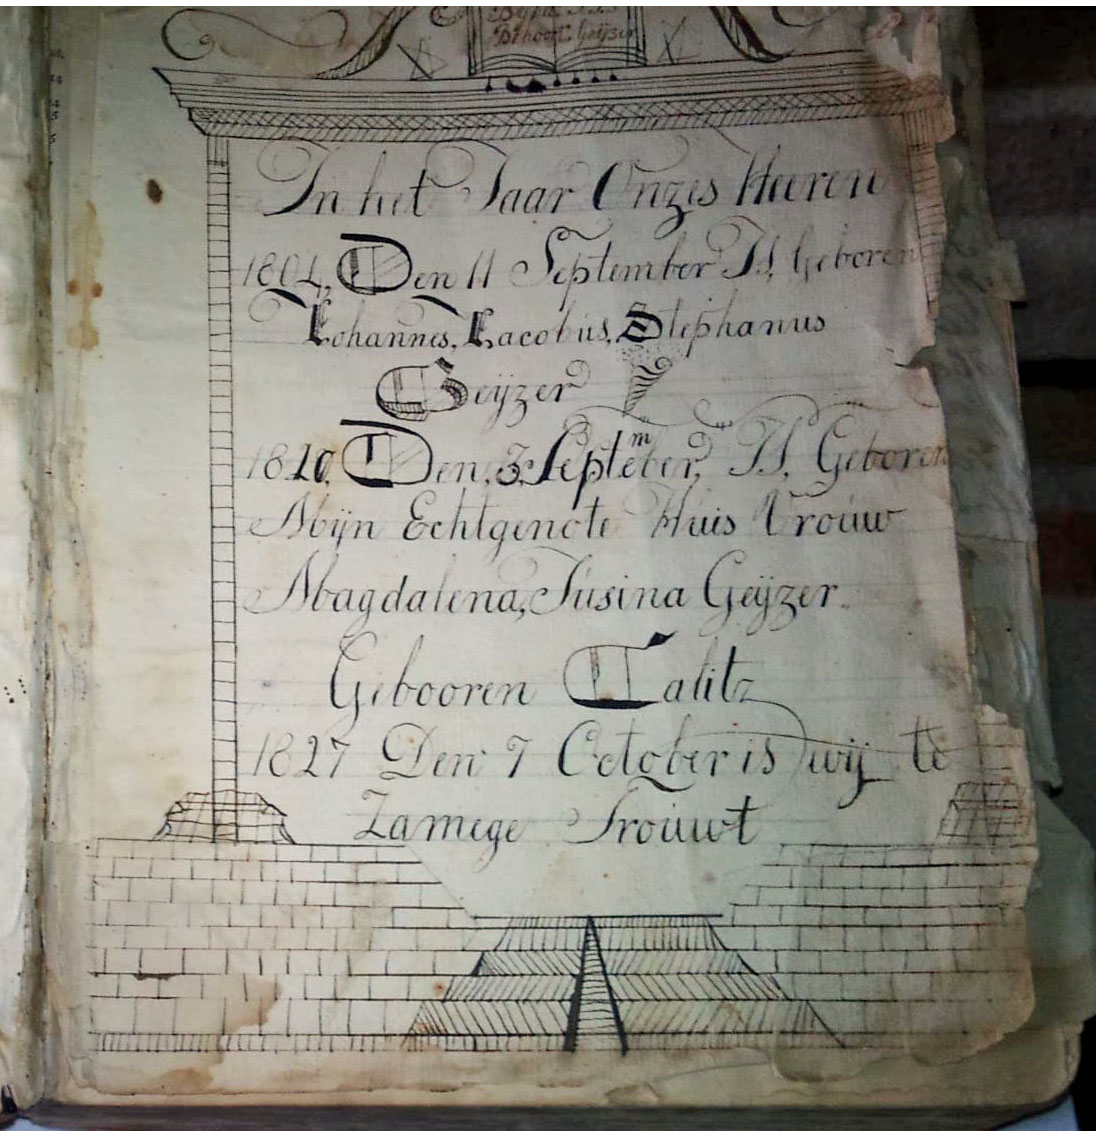 Behoort Geijzer
In het Jaar Onzes Heeren
1804, Den 11 September Is Geboren
Iohannes, Iacobus, Stephanus
Geijzer
1810, Den, 3, September, Is, Geboren
Mijn Echtgenote Huis Vrouw
Magdalena, Susina Geijzer
Gebooren Talitz
1827 Den 7 October is wij te
Zamege Trouwt